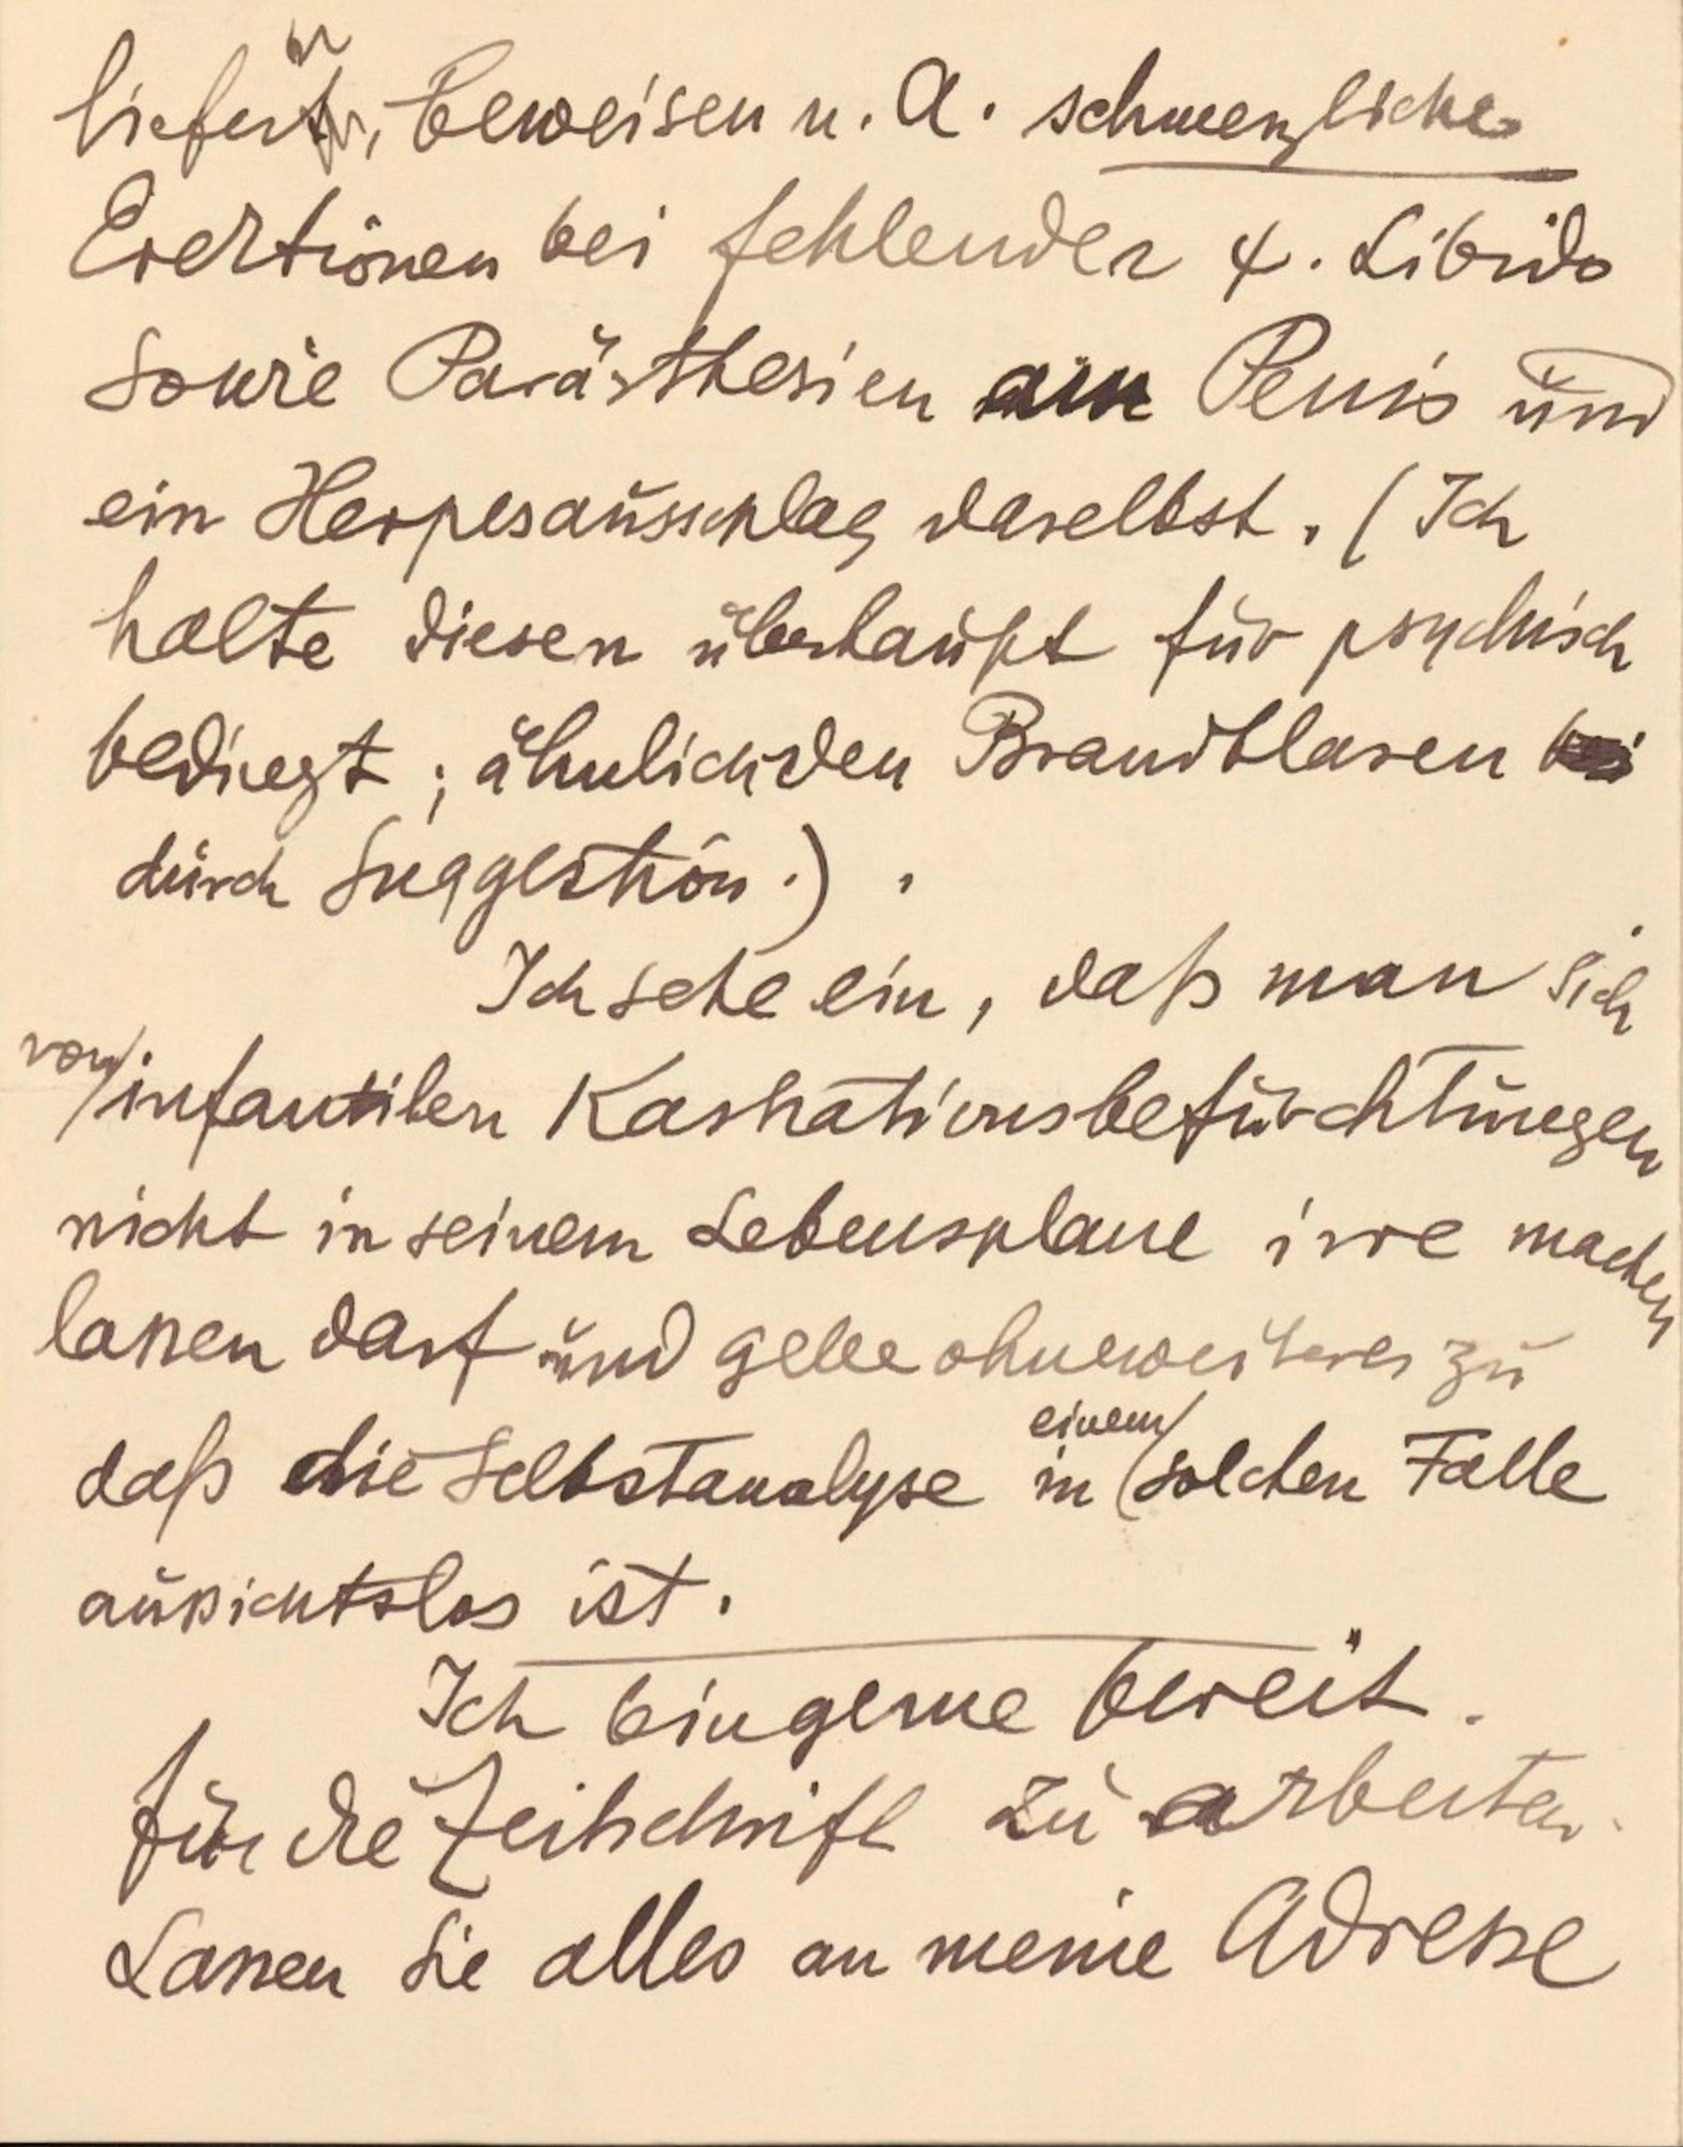 liefert, beweisen u. A. schmerzliche
Erektionen bei fehlender ψ. Libido
sowie Parästhesien am Penis und
ein Herpesausschlag daselbst. (Ich
halte diesen überhaupt für psychisch
bedingt; ähnlich den Brandblasen bei
durch Suggestion.).
Ich sehe ein, daß man sich
von infantilen Kastrationsbefürchtungen
nicht in seinem Lebensplane irre machen
lassen darf und gebe ohneweiteres zu
daß die Selbstanalyse in einem solchen Falle
aussichtslos ist.
Ich bin gerne bereit.
für die Zeitschrift zu arbeiten.
Lassen Sie alles an meine Adresse